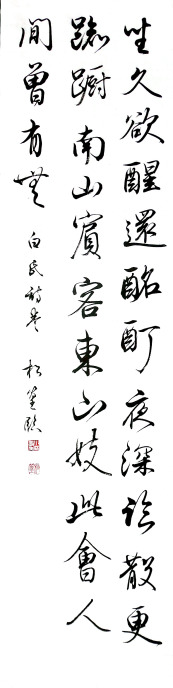 坐久欲醒還酩酊夜深臨散更
踟躕南山賓客東山妓此會人
間曾有無 白氏詩